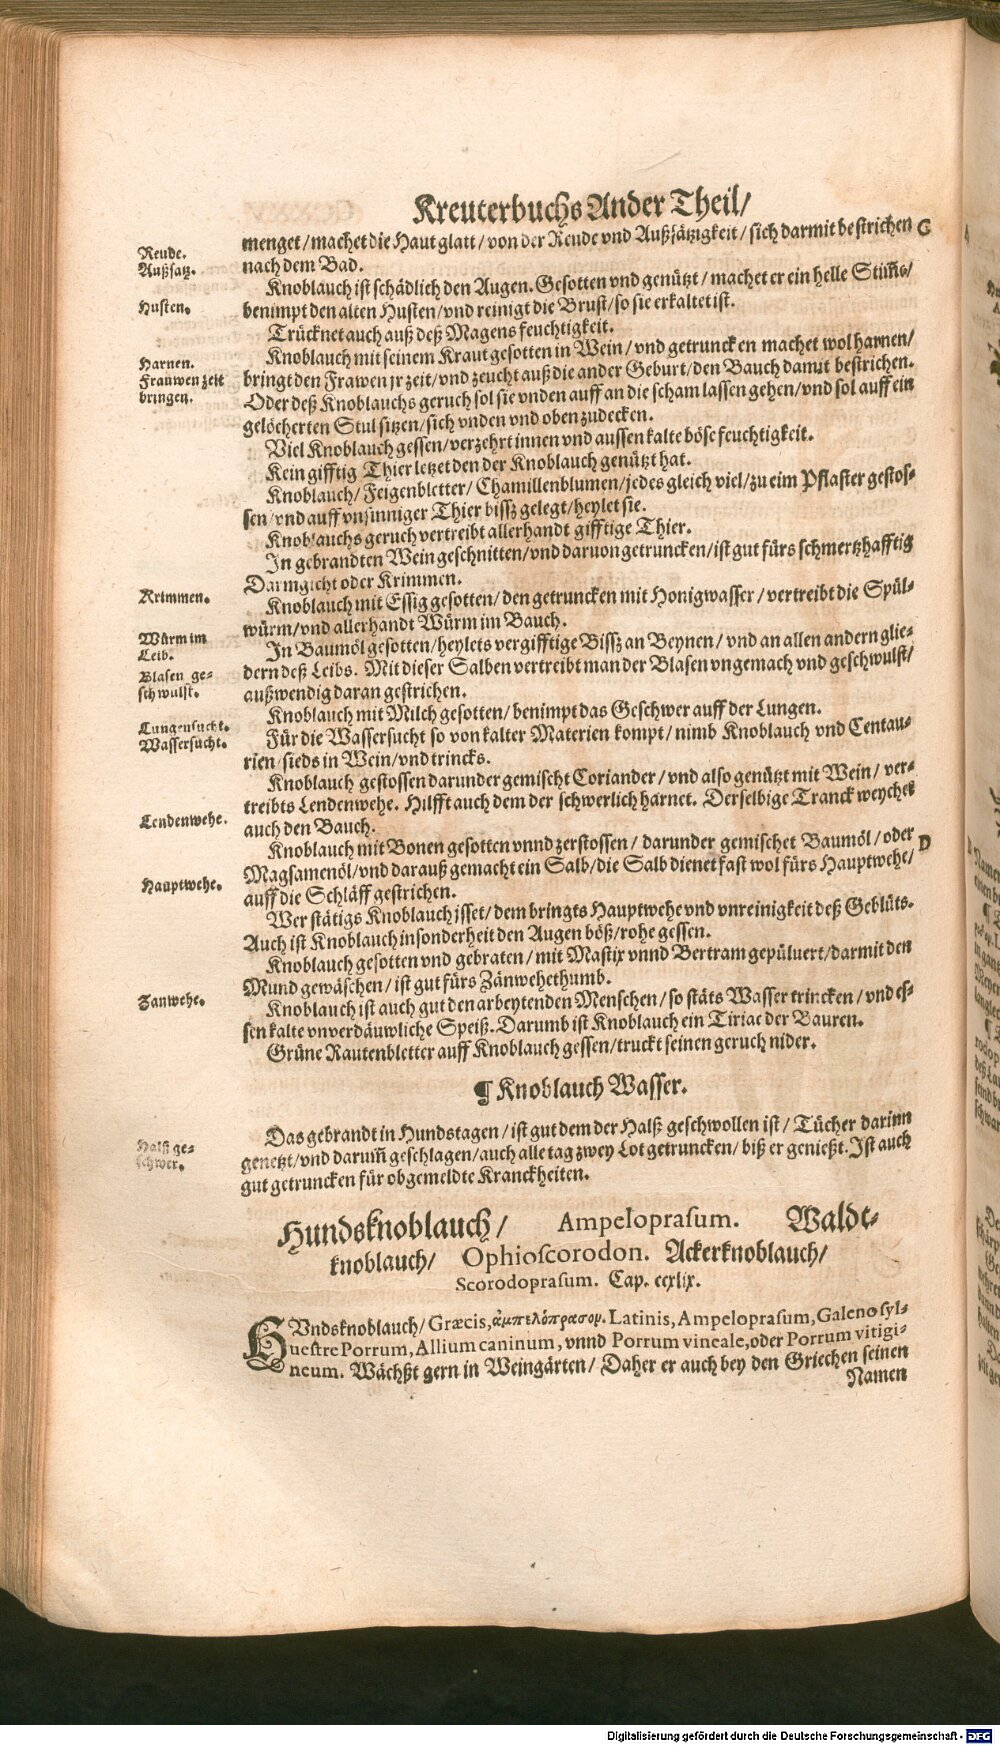 Kreuterbuchs Ander Theil/
menget/machet die Haut glatt/von der Reude vnd Außsätzigkeit/sich darmit bestrichen
nach dem Bad.
Knoblauch ist schädlich den Augen. Gesotten vnd genützt/machet er ein helle Stim̃/
benimpt den alten Husten/vnd reinigt die Brust/so sie erkaltet ist.
Trücknet auch auß deß Magens feuchtigkeit.
Knoblauch mit seinem Kraut gesotten in Wein/vnd getruncken machet wol harnen/
bringt den Frawen jr zeit/vnd zeucht auß die ander Geburt/den Bauch damit bestrichen.
Oder deß Knoblauchs geruch sol sie vnden auff an die scham lassen gehen/vnd sol auff ein
gelöcherten Stul sitzen/sich vnden vnd oben zudecken.
Viel Knoblauch gessen/verzehrt innen vnd aussen kalte böse feuchtigkeit.
Kein gifftig Thier letzet den der Knoblauch genützt hat.
Knoblauch/Feigenbletter/Chamillenblumen/jedes gleich viel/zu eim Pflaster gestos-
sen/vnd auff vnsinniger Thier bissz gelegt/heylet sie.
Knoblauchs geruch vertreibt allerhandt gifftige Thier.
In gebrandten Wein geschnitten/vnd daruon getruncken/ist gut fürs schmertzhafftig
Darmgicht oder Krimmen.
Knoblauch mit Essig gesotten/den getruncken mit Honigwasser/vertreibt die Spül-
würm/vnd allerhandt Würm im Bauch.
In Baumöl gesotten/heylets vergifftige Bissz an Beynen/vnd an allen andern glie-
dern deß Leibs. Mit dieser Salben vertreibt man der Blasen vngemach vnd geschwulst/
außwendig daran gestrichen.
Knoblauch mit Milch gesotten/benimpt das Geschwer auff der Lungen.
Für die Wassersucht so von kalter Materien kompt/nimb Knoblauch vnd Centau-
rien/sieds in Wein/vnd trincks.
Knoblauch gestossen darunder gemischt Coriander/vnd also genützt mit Wein/ver-
treibts Lendenwehe. Hilfft auch dem der schwerlich harnet. Derselbige Tranck weychet
auch den Bauch.
Knoblauch mit Bonen gesotten vnnd zerstossen/darunder gemischet Baumöl/oder
Magsamenöl/vnd darauß gemacht ein Salb/die Salb dienet fast wol fürs Hauptwehe/
auff die Schläff gestrichen.
Wer stätigs Knoblauch isset/dem bringts Hauptwehe vnd vnreinigkeit deß Geblüts.
Auch ist Knoblauch insonderheit den Augen böß/rohe gessen.
Knoblauch gesotten vnd gebraten/mit Mastix vnnd Bertram gepüluert/darmit den
Mund gewäschen/ist gut fürs Zänwehethumb.
Knoblauch ist auch gut den arbeytenden Menschen/so stäts Wasser trincken/vnd es-
sen kalte vnverdäuwliche Speiß. Darumb ist Knoblauch ein Tiriac der Bauren.
Grüne Rautenbletter auff Knoblauch gessen/truckt seinen geruch nider.
¶ Knoblauch Wasser.
Das gebrandt in Hundstagen/ist gut dem der Halß geschwollen ist/Tücher darinn
genetzt/vnd darum̃ geschlagen/auch alle tag zwey Lot getruncken/biß er genießt. Ist auch
gut getruncken für obgemeldte Kranckheiten.
Hundsknoblauch/ Ampeloprasum. Waldt-
knoblauch/ Ophioscorodon. Ackerknoblauch/
Scorodoprasum. Cap. ccxlix.
HVndsknoblauch/Græcis, ἀμπελόπρασον. Latinis, Ampeloprasum, Galeno syl-
uestre Porrum, Allium caninum, vnnd Porrum vineale, oder Porrum vitigi-
neum. Wächßt gern in Weingärten/Daher er auch bey den Griechen seinen
Namen
Reude.
Außsatz.
Husten.
Harnen.
Frauwen zeit
bringen.
Krimmen.
Würm im
Leib.
Blasen ge-
schwulst.
Lungensucht.
Wassersucht.
Lendenwehe.
Hauptwehe.
Zanwehe.
Halß ge-
schwer.
C
D
Digitalisierung gefördert durch die Deutsche Forschungsgemeinschaft - DFG